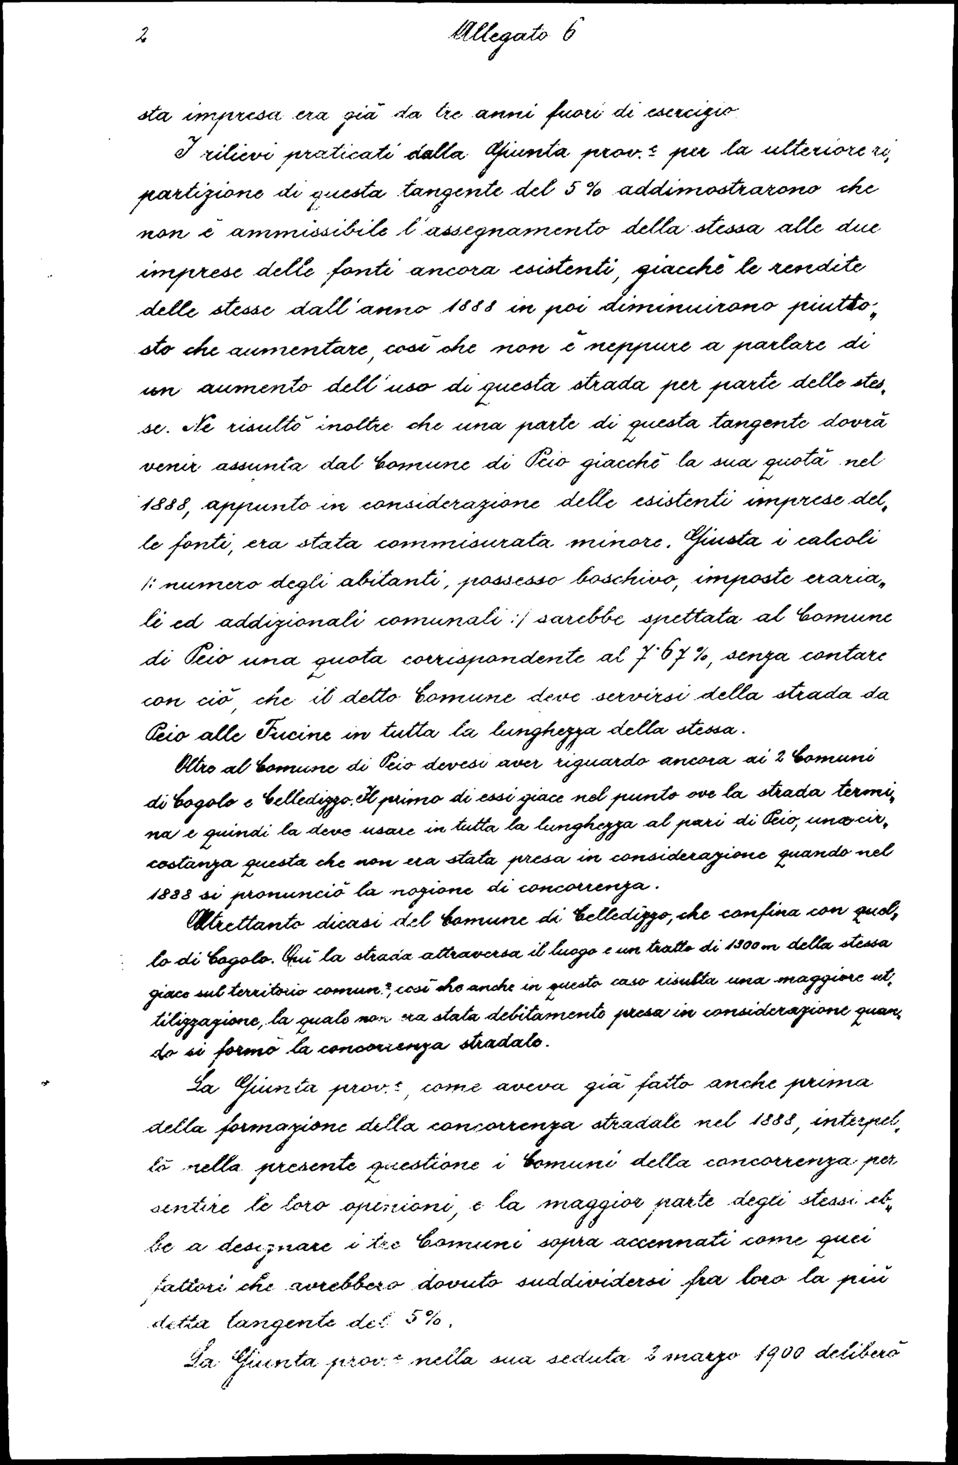 2 Allegato 6
sta impresa era già da tre anni fuori di esercizio
I rilievi praticati dalla Giunta prov.e per la ulteriore ri„
partizione di questa tangente del 5% addimostrarono che
non è ammissibile l'assegnamento della stessa alle due
imprese delle fonti ancora esistenti, giacchè le rendite
delle stesse dall'anno 1888 in poi diminuirono piutto„
sto che aumentare, così che non è neppure a parlare di
un aumento dell'uso di questa strada per parte delle stes„
se. Ne risultò inoltre che una parte di questa tangente dovrà
venir assunta dal Comune di Peio giacchè la sua quota nel
1888, appunto in considerazione delle esistenti imprese del„
le fonti, era stata commisurata minore. Giusta i calcoli
/: numero degli abitanti, possesso boschivo, imposte eraria„
li ed addizionali comunali :/ sarebbe spettata al Comune
di Peio una quota corrispondente al 7·67%, senza contare
con ciò, che il detto Comune deve servirsi della strada da
Peio alle Fucine in tutta la lunghezza della stessa.
Oltre al Comune di Peio devesi aver riguardo ancora ai 2 Comuni
di Cogolo e Celledizzo. Il primo di essi giace nel punto ove la strada termi„
na e quindi la deve usare in tutta la lunghezza al pari di Peio, una cir„
costanza questa che non era stata presa in considerazione quando nel
1888 si pronunciò la nozione di concorrenza.
Altrettanto dicasi del Comune di Celledizzo, che confina con quel„
lo di Cogolo. Qui la strada attraversa il luogo e un tratto di 1300 m della stessa
giace sul territorio comun.e, così che anche in questo caso risulta una maggiore ut„
tilizzazione, la quale non era stata debitamente presa in considerazione quan„
do si formò la concorrenza stradale.
La Giunta prov.e, come aveva già fatto anche prima
della formazione della concorrenza stradale nel 1888, interpel„
lò nella presente questione i Comuni della concorrenza per
sentire le loro opinioni, e la maggior parte degli stessi eb„
be a designare i tre Comuni sopra accennati come quei
fattori che avrebbero dovuto suddividersi fra loro la più
detta tangente del 5%.
La Giunta prov.e nella sua seduta 2 marzo 1900 deliberò